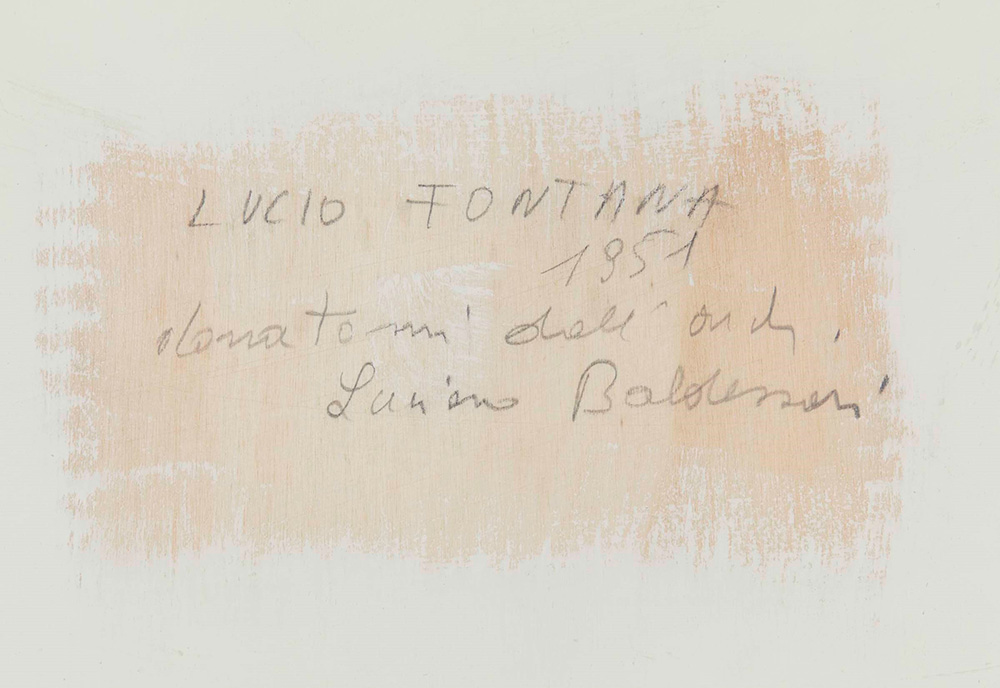 LUCIO FONTANA
1951
donatomi dall' arch.
Luciano Baldessari